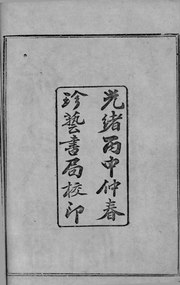 光緒丙申仲春
珍藝書局校印